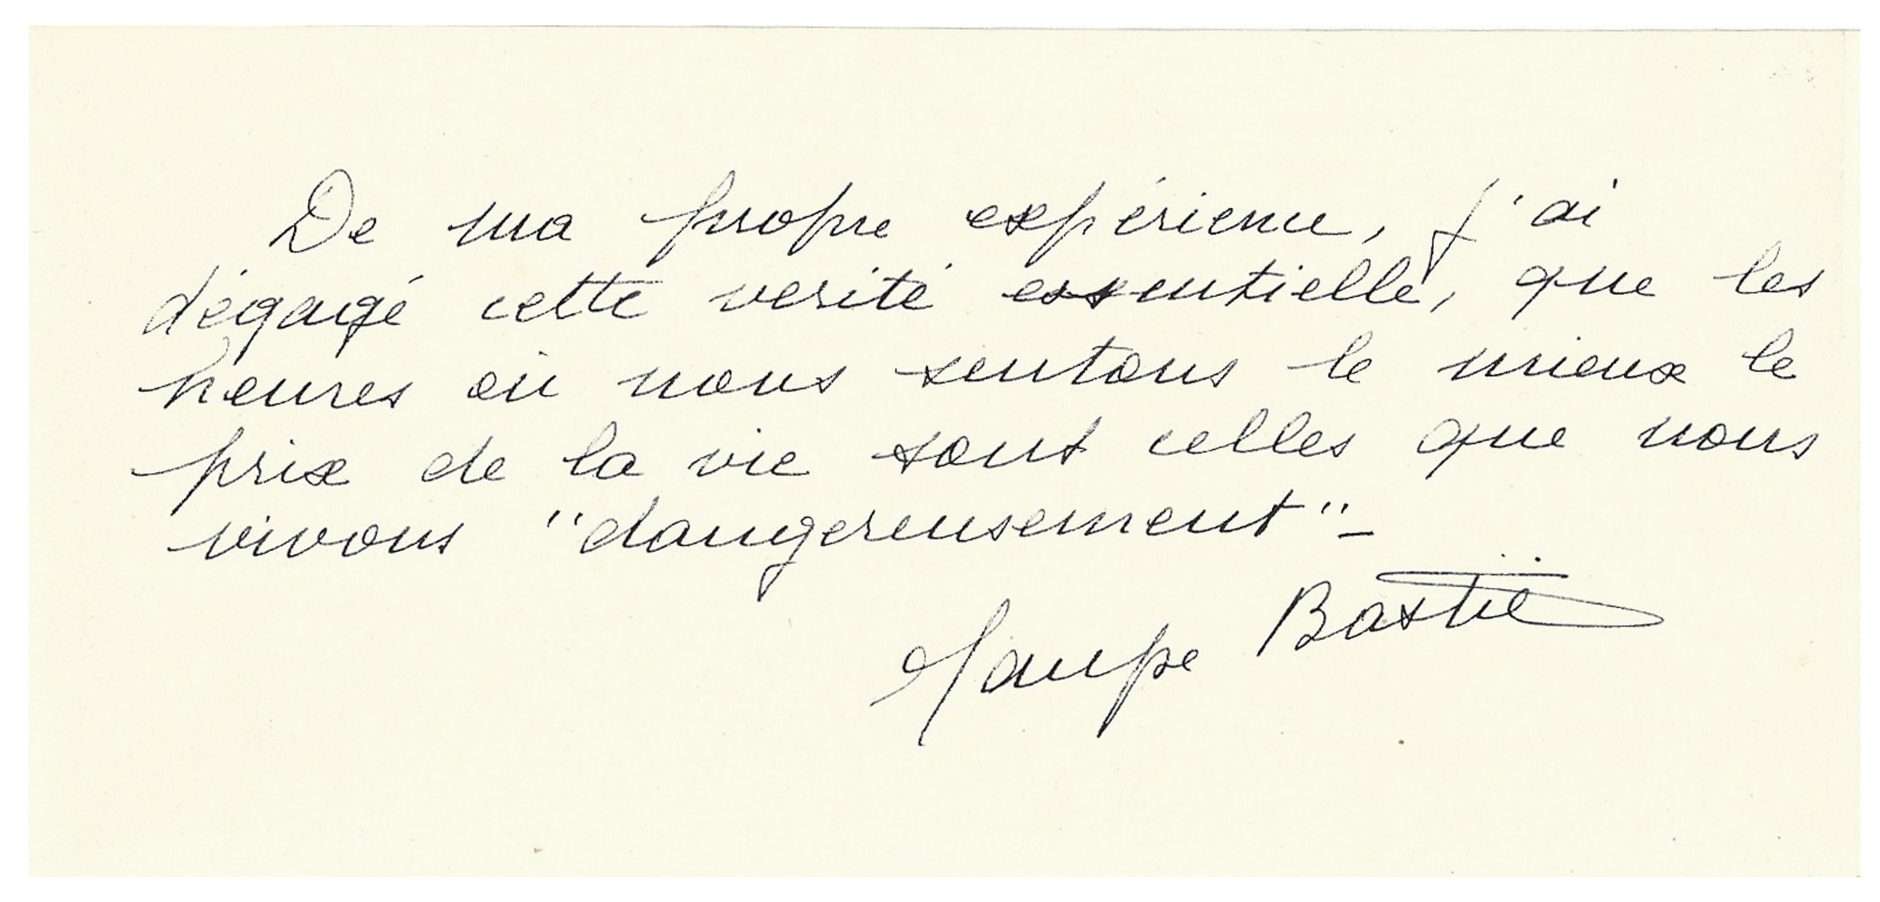 De ma propre expérience, j'ai
dégagé cette verité essentielle, que les
heures où nous sentons le mieux le
prix de la vie sont celles que nous
vivons "dangereusement"-
Maryse Bastié